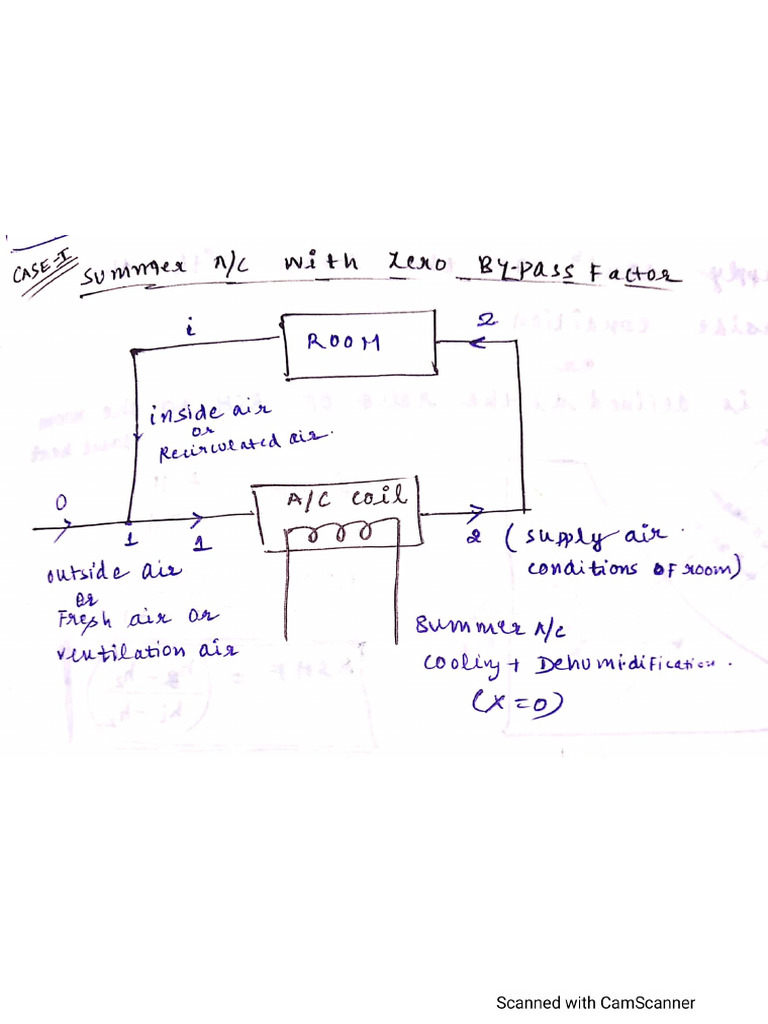 CASE-I
Summer A/C with Zero By-pass Factor
i
ROOM
2
inside air
or
Recirculated air.
O
1
1
A/C coil
2 (supply air
conditions of room)
outside air
or
Fresh air or
ventilation air
Summer A/C
Cooling + Dehumidification.
(X=0)
Scanned with CamScanner